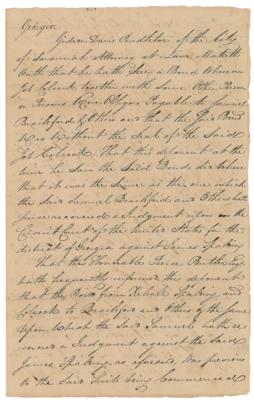 Georgia
Gideon Davis Pendleton of the City
of Savannah Attorney at Law Maketh
Oath that he hath Seen a Bond Wherein
Job Colcock Together with Some Other Person
or Persons Were Obligors Payable to Samuel
Brailsford & Others and that the Said Bond
Was Without the Seal of the Said
Job Colcock That this deponent at the
time he Saw the Said Bond did believe
that it was the Same as the one which
the Said Samuel Brailsford and Others hath
since recovered a Judgment upon in the
Circuit Court of the United States for the
district of Georgia against James Spalding
That the Honorable Pierce Butler Esq
hath frequently informed the deponent
that the Bond from Kelsall Spalding and
Colcock to Brailsford and Others of the same
Upon Which the Said Samuel hath re
covered a Judgment against the Said
James Spalding as aforesaid Was previous
to the Said Suits being Commenced